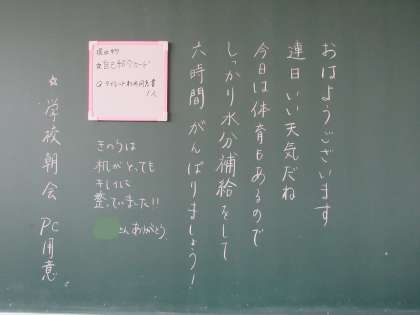 おはようございます
連日いい天気だね
今日は体育もあるので
しっかり水分補給をして
六時間がんばりましょう!
提出物
☆自己紹介カード
きのうは
机がとても
キレイに
整っていました!!
さんありがとう
☆学校朝会 PC用意